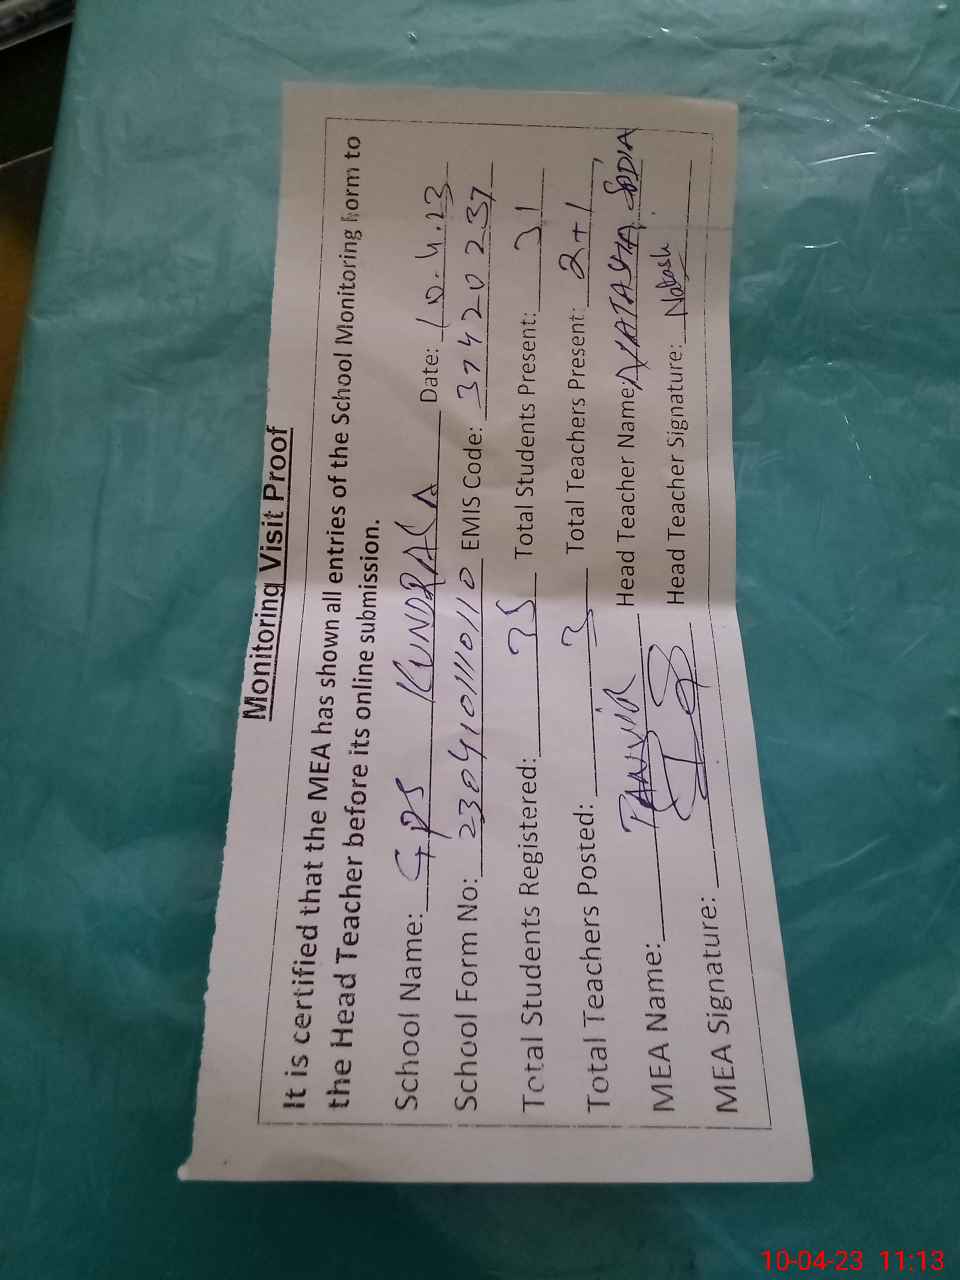 Monitoring Visit Proof
It is certified that the MEA has shown all entries of the School Monitoring Form to
the Head Teacher before its online submission.
School Name: GPS KUNDRALA Date: 10.4.23
School Form No: 2304101110110 EMIS Code: 37420237
Total Students Registered: 35 Total Students Present: 31
Total Teachers Posted: 3 Total Teachers Present: 2+1
MEA Name: TANVIR Head Teacher Name: NATASHA
MEA Signature: Head Teacher Signature: Natash
10-04-23 11:13